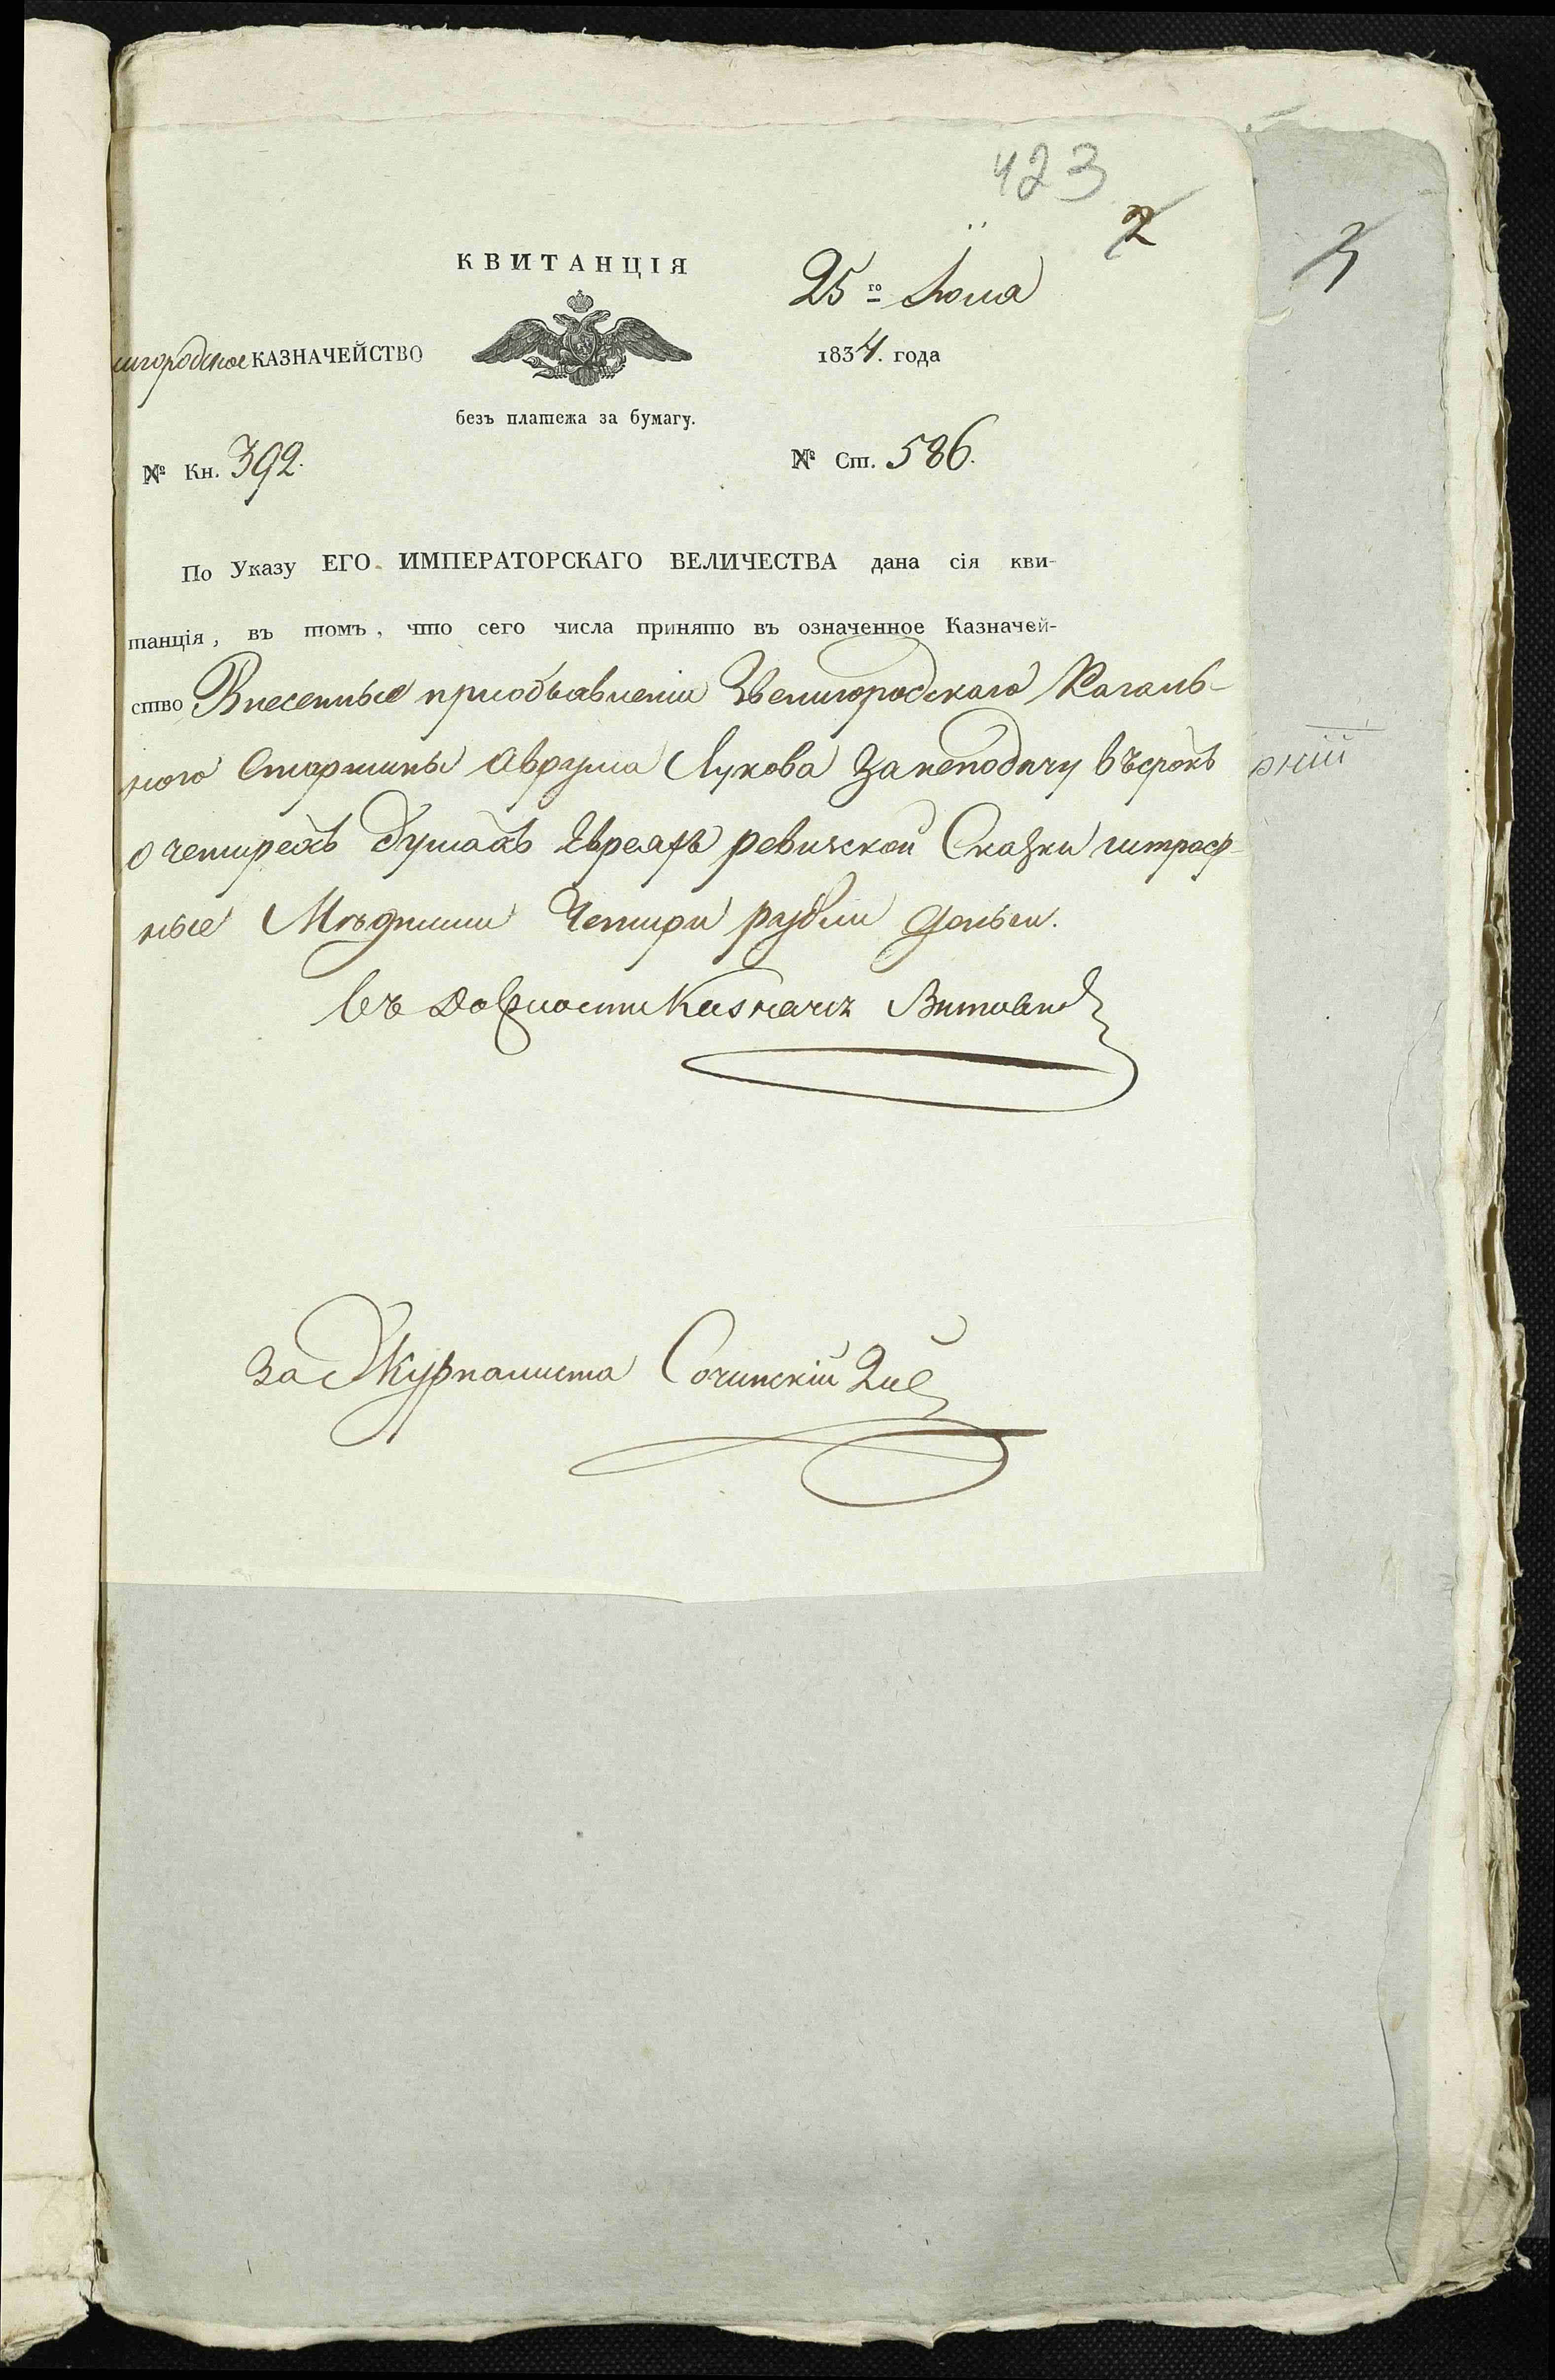 423
2
3
КВИТАНЦІЯ
25го Іюля
игородское КАЗНАЧЕЙСТВО
1834. года
безъ платежа за бумагу.
№ Кн. 392.
№ Ст. 586.
По Указу ЕГО ИМПЕРАТОРСКАГО ВЕЛИЧЕСТВА дана сія кви-
танція, въ томъ, что сего числа принято въ означенное Казначей-
ство Внесенные приобъявленіи Звенигородскаго Кагаль-
ного Старшины Аврума Лукова Занеподачу въсрокъ
о четирехъ душахъ Евреяхъ ревизской Сказки штраф-
ные Мѣдними Четири рубли деньги.
Въ Должности Казначея
за Журналиста Сочинскій